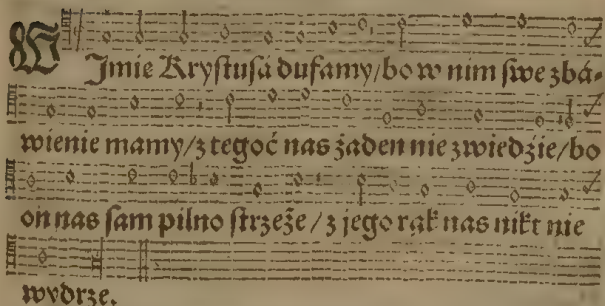 W Jmie Krystusá dufamy/bo w nim swe zbá-
wienie mamy/z tegoć nas żaden nie zwiedźie/bo
on nas sam pilno strzeże/z jego rąk nas nikt nie
wydrze.